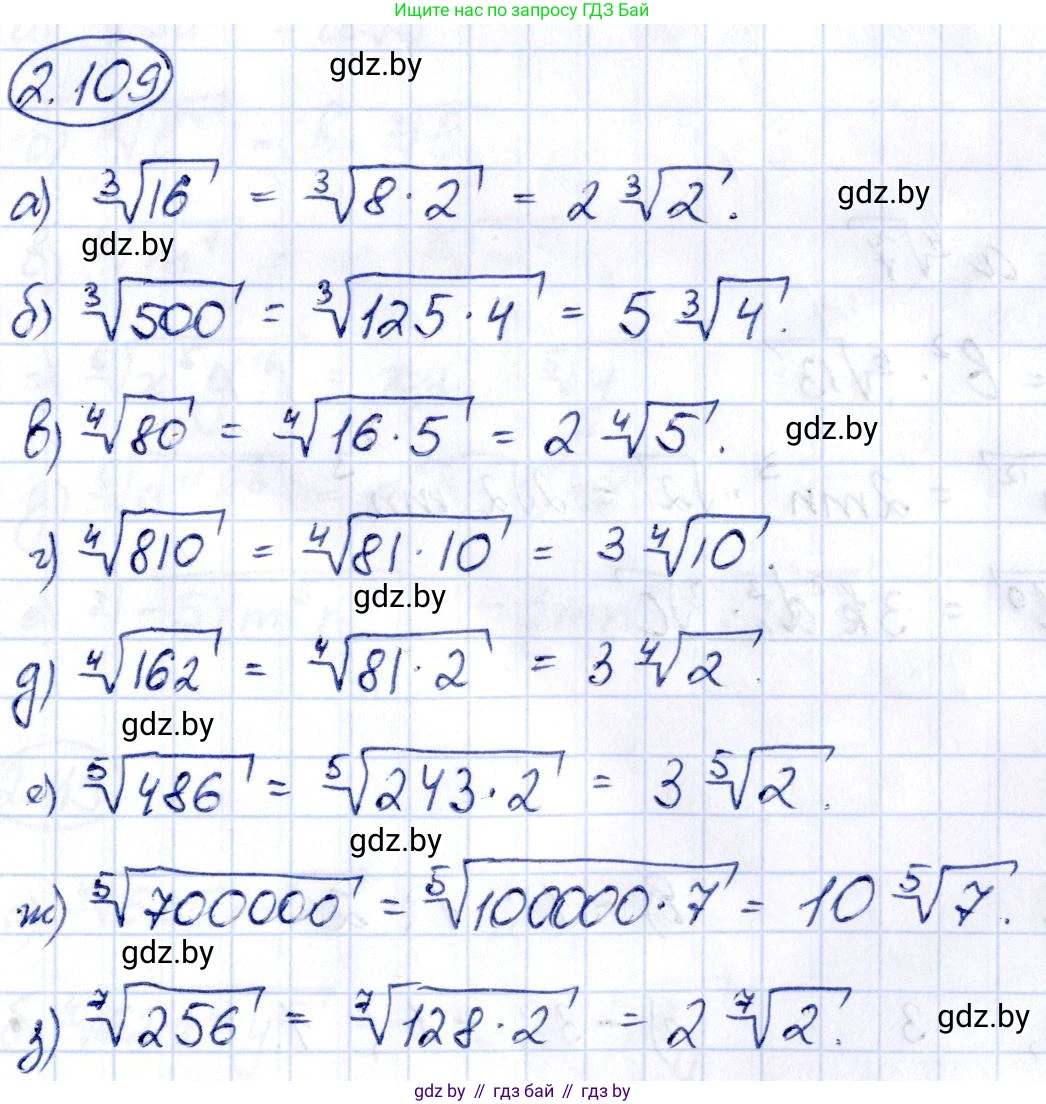 Ищите нас по запросу ГДЗ Бай
2.109
gdz.by
а) ∛16 = ∛8·2 = 2 ∛2.
gdz.by
gdz.by
б) ∛500 = ∛125·4 = 5 ∛4.
в) ∜80 = ∜16·5 = 2 ∜5.
gdz.by
г) ∜810 = ∜81·10 = 3 ∜10.
gdz.by
д) ∜162 = ∜81·2 = 3 ∜2.
gdz.by
е) ⁵√486 = ⁵√243·2 = 3 ⁵√2.
gdz.by
ж) ⁵√700000 = ⁵√100000·7 = 10 ⁵√7.
gdz.by
з) ⁷√256 = ⁷√128·2 = 2 ⁷√2.
gdz.by
gdz.by // гдз бай // гдз by